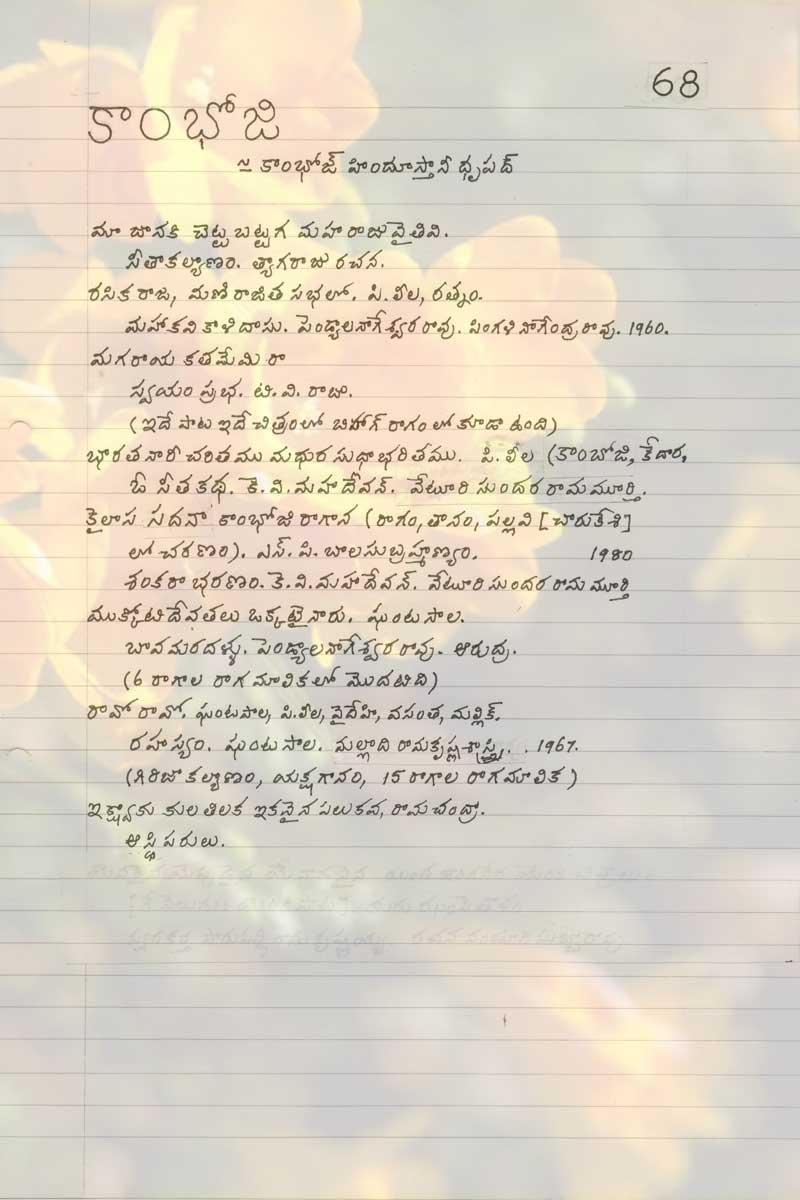 68
కాంభోజి
≃ కాంభోజ్ హిందూస్తానీ ధృపద్
మా జానకి చెట్టబట్టగ మహరాజువైతివి.
సీతాకల్యాణం. త్యాగరాజు రచన.
రసిక రాజ, మణి రాజిత సభలో. పి.లీల, రత్నం.
మహాకవి కాళిదాసు. పెండ్యాల నాగేశ్వర రావు. పింగళి నాగేంద్ర రావు. 1960.
మగరాయ కతమేమి రా
స్వయం ప్రభ. టి.వి. రాజు.
(ఇదే పాట ఇదే చిత్రంలో బిహాగ్ రాగం లో కూడా ఉంది)
భారతనారీ చరితము మధుర సుధాభరితము. పి.లీల (కాంబోజి, కేదార,
ఓ సీత కథ. కె.వి.మహాదేవన్. వేటూరి సుందర రామమూర్తి.
కైలాస సదనా కాంభోజి రాగాన (రాగం, తానం, పల్లవి [చారుకేశి]
లో చరణం). ఎస్.పి.బాలసుబ్రహ్మణ్యం. 1980
శంకరా భరణం. కె.వి.మహాదేవన్. వేటూరి సుందర రామ మూర్తి
ముక్కోటి దేవతలు ఒక్కటైనారు. ఘంటసాల.
బావమరదళ్ళు. పెండ్యాల నాగేశ్వర రావు. ఆరుద్ర.
(6 రాగాల రాగమాలికలో మొదటిది)
రావో రావో. ఘంటసాల, పి.లీల, వైదేహి, వసంత, మల్లిక్.
రహస్యం. ఘంటసాల. మల్లాది రామకృష్ణశాస్త్రి. . 1967.
(గిరిజా కల్యాణం, యక్షగానం, 15 రాగాల రాగమాలిక)
ఇక్ష్వాకు కుల తిలక ఇకనైన పలుకవ, రామచంద్రా.
ఆస్థిపరులు.